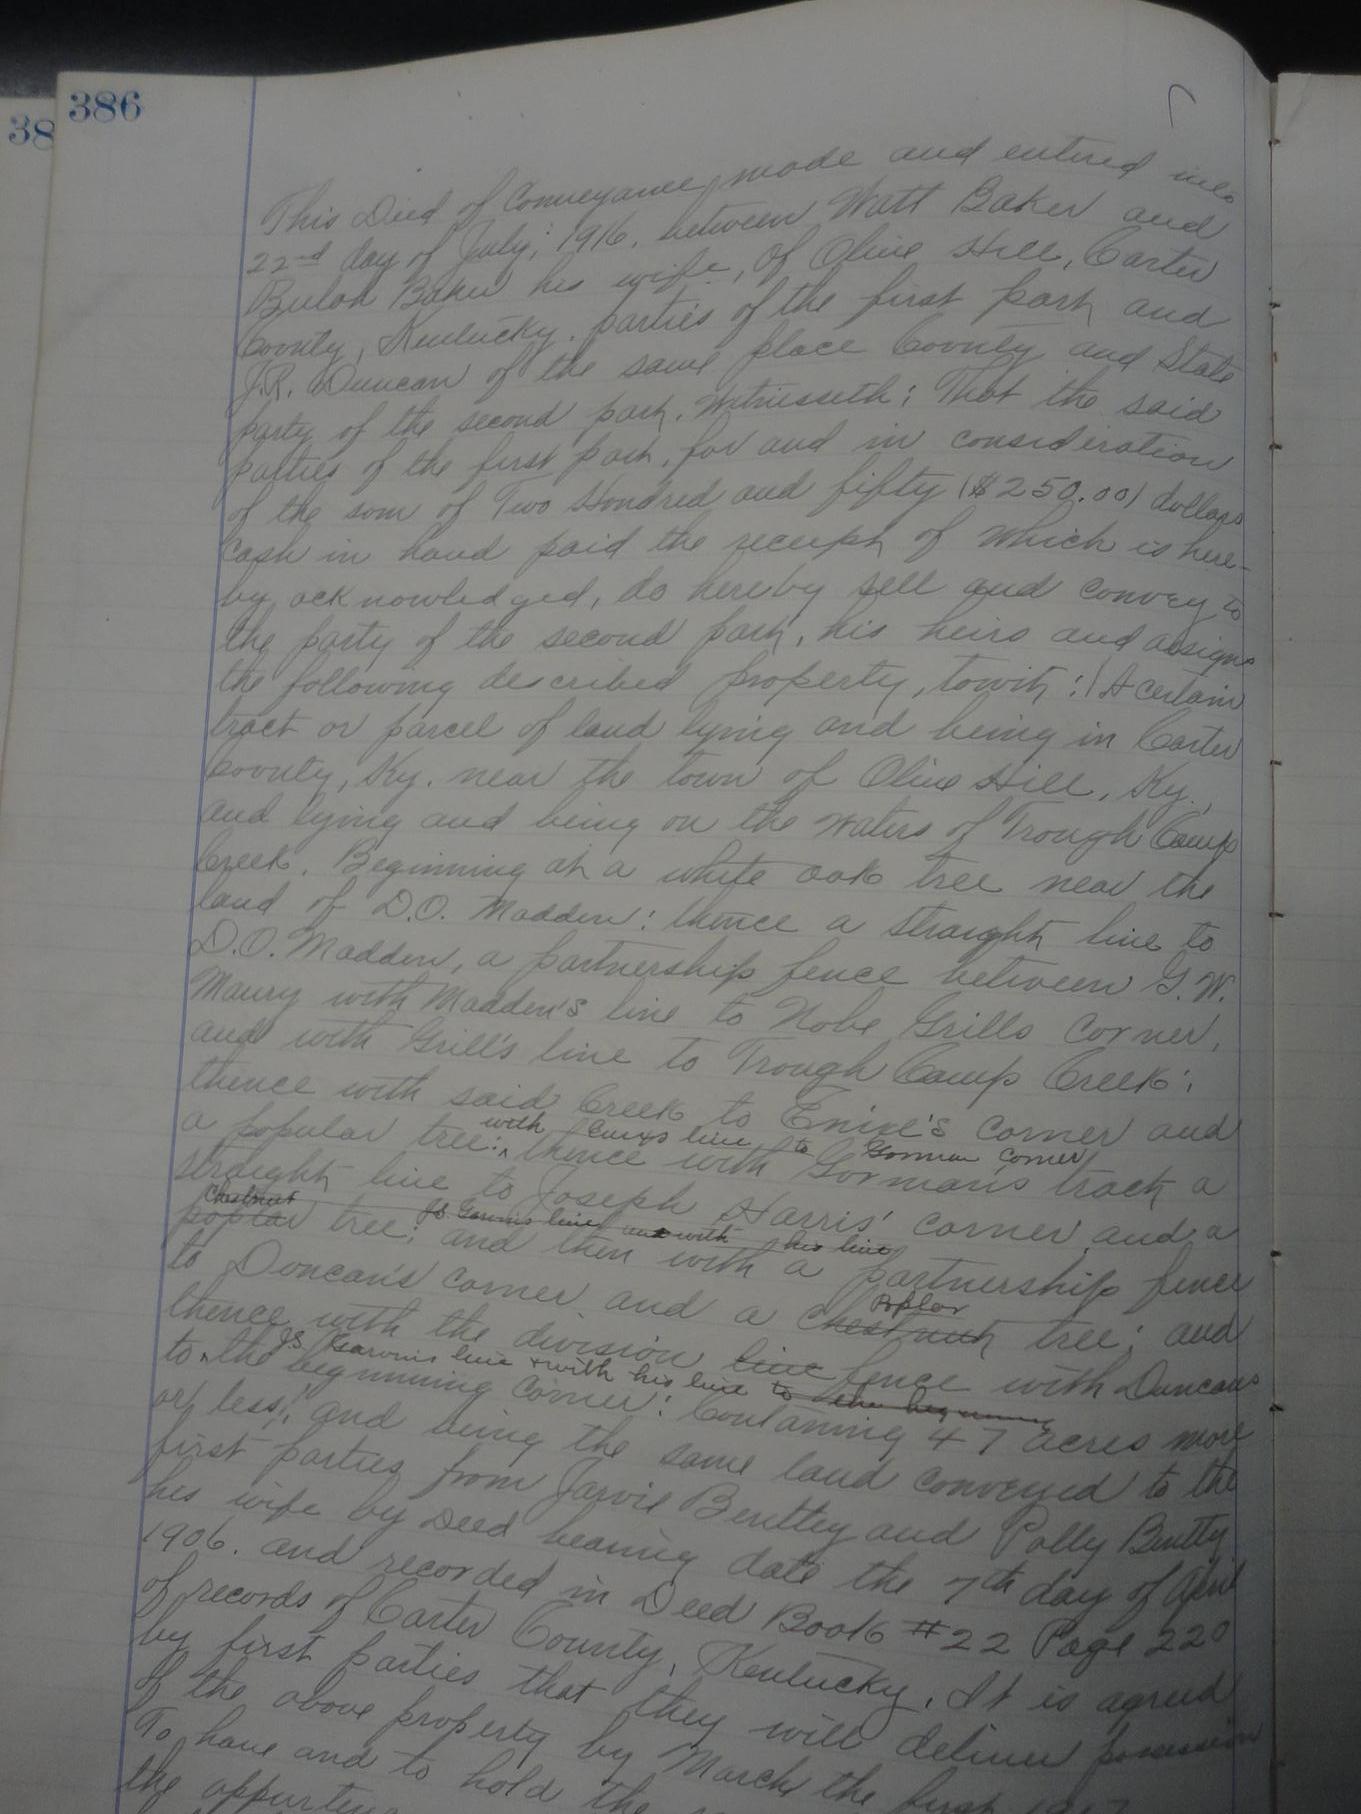 386
38
This Deed of Conveyance, made and entered into
22nd day of July, 1916, between Watt Baker and
Bulah Baker his wife, of Olive Hill, Carter
County, Kentucky, parties of the first part, and
J.R. Duncan of the same place County and State
party of the second part. Witnesseth: That the said
parties of the first part, for and in consideration
of the sum of Two Hundred and fifty ($250.00) dollars
Cash in hand paid the receipt of which is here-
by acknowledged, do hereby sell and convey to
the party of the second part, his heirs and assigns
the following described property, towit: A certain
tract or parcel of land lying and being in Carter
County, Ky. near the town of Olive Hill, Ky.,
and lying and being on the waters of Trough Camp
Creek. Beginning at a white oak tree near the
land of D.O. Madden: thence a straight line to
D.O. Madden, a partnership fence between G.W.
Maury with Madden's line to Nobe Grills corner,
and with Grill's line to Trough Camp Creek;
thence with said Creek to Enixe's corner and
with line to Gorman corner
a popular tree: thence with Gorman's track a
straight line to Joseph Harris' corner and a
Chestnut Garvins line and with his line
poplar tree; and then with a partnership fence
to Duncan's corner and a chestnut tree; and
Poplar
thence with the division line fence with Duncans
J.S. Garvins line + with his line to the beginning
to the beginning corner: Containing 47 acres more
or less, and being the same land conveyed to the
first parties from Jarvie Bentley and Polly Bentley
his wife by Deed bearing date the 7th day of April
1906. and recorded in Deed Book #22 Page 220
of records of Carter County, Kentucky. It is agreed
by first parties that they will deliver possession
of the above property by March the first 1917
To have and to hold the
the